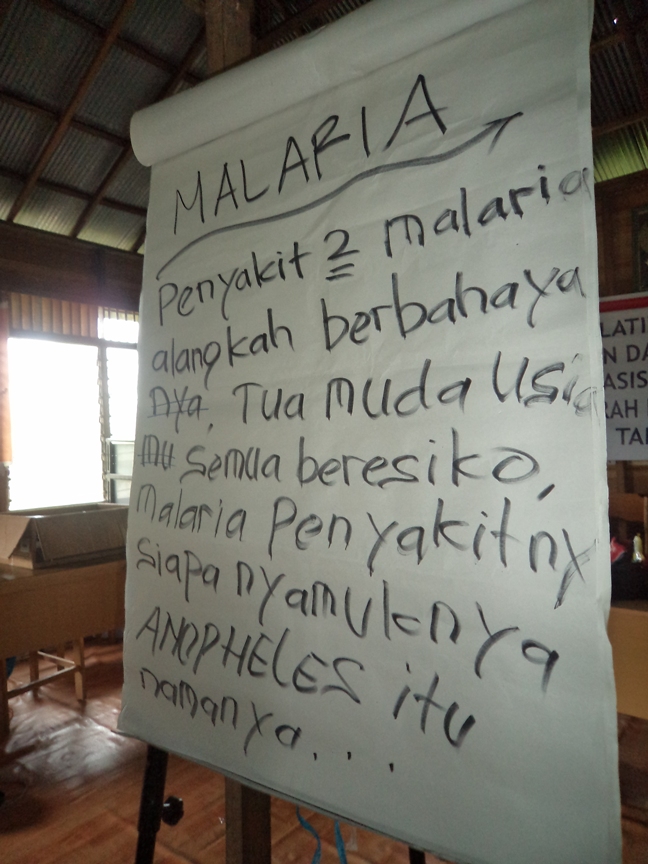 MALARIA
Penyakit 2 malaria
alangkah berbahaya
nya, Tua muda Usia
mu semua beresiko,
Malaria Penyakitny
siapa nyamuknya
ANOPHELES itu
namanya...
LATI
N DA
ASIS
RAH
TA